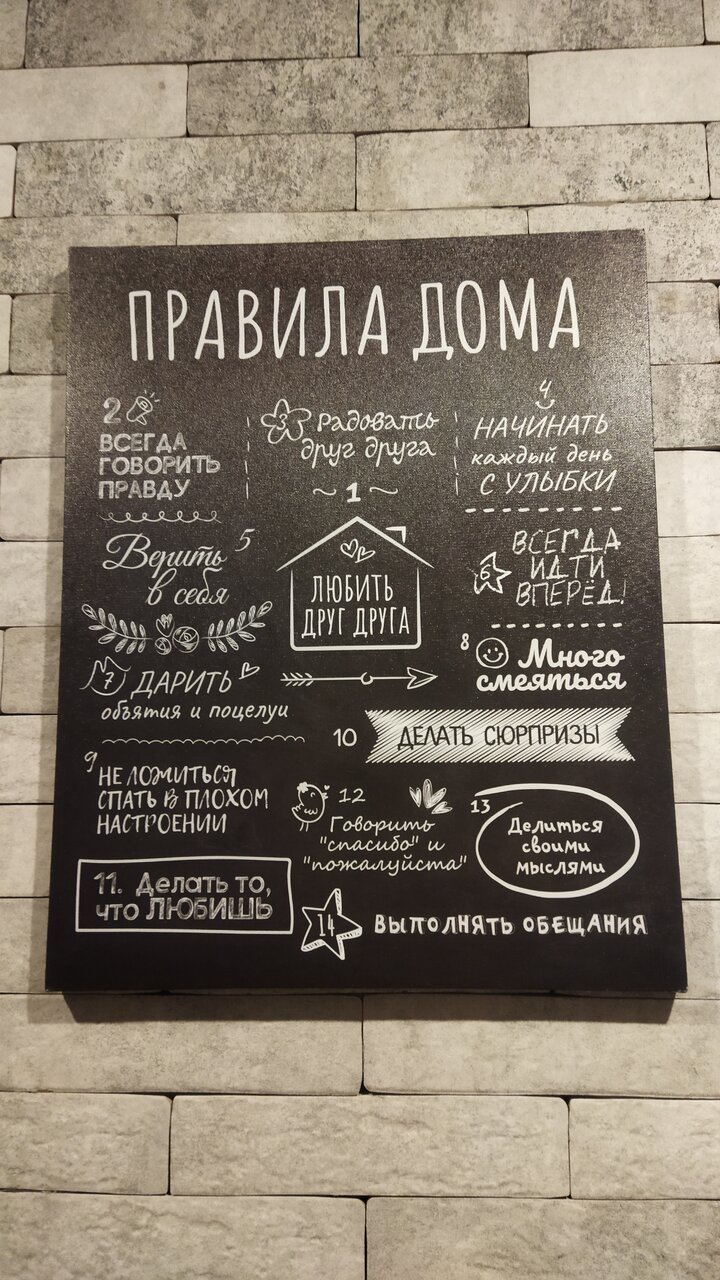 ПРАВИЛА ДОМА
2
ВСЕГДА
ГОВОРИТЬ
ПРАВДУ
3 Радовать
друг друга
4
НАЧИНАТЬ
каждый день
С УЛЫБКИ
~ 1 ~
ЛЮБИТЬ
ДРУГ ДРУГА
5
Верить
в себя
6
ВСЕГДА
ИДТИ
ВПЕРЁД!
7 ДАРИТЬ
объятия и поцелуи
8 Много
смеяться
9
НЕ ЛОЖИТЬСЯ
СПАТЬ В ПЛОХОМ
НАСТРОЕНИИ
10 ДЕЛАТЬ СЮРПРИЗЫ
11. Делать то,
что ЛЮБИШЬ
12
Говорить
"спасибо" и
"пожалуйста"
13
Делиться
своими
мыслями
14 ВЫПОЛНЯТЬ ОБЕЩАНИЯ